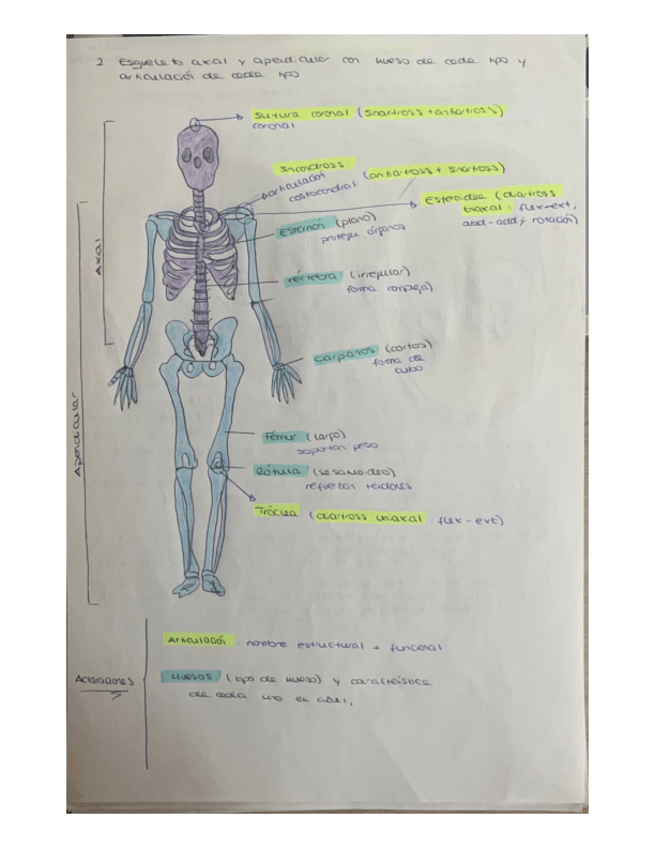 2 Esqueleto axial y apendicular con hueso de cada tipo y
articulación de cada tipo.
Sutura coronal (sinartrosis + anfiartrosis)
coronal
Sincondrosis: (anfiartrosis + sinartrosis)
articulación
costocondral
Esferoidea (diartrosis
triaxial: flex-ext,
abd-add y rotación)
Esternón (plano)
protege órganos
Vértebra (irregular)
forma compleja
Carpianos (cortos)
forma de
cubo
Fémur (largo)
soportan peso
Rótula (sesamoideo)
refuerzan tendones
Tróclea (diartrosis uniaxial: flex-ext)
Axial
Apendicular
Aclaraciones
Articulación: nombre estructural + funcional
Huesos: (tipo de hueso) y característica
de cada uno en azul.